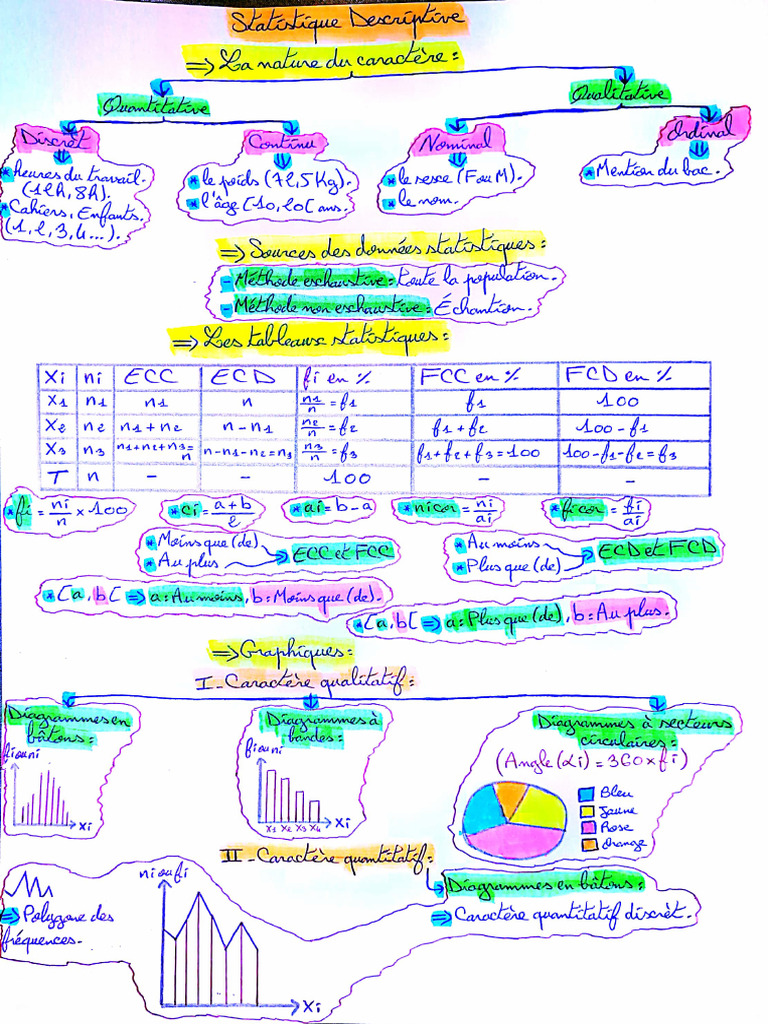 Statistique Descriptive
⇒ La nature du caractère :
Quantitative
Qualitative
Discret
Continu
Nominal
Ordinal
* heures du travail.
(12h, 8h).
* Cahiers, Enfants.
(1, 2, 3, 4...).
* le poids (72,5 Kg).
* l'âge [10, 20[ ans.
* le sexe (F ou M).
* le nom.
* Mention du bac.
⇒ Sources des données statistiques :
- Méthode exhaustive : toute la population.
- Méthode non exhaustive : Échantion.
⇒ Les tableaux statistiques :
Xi ni ECC ECD fi en % FCC en % FCD en %
X1 n1 n1 n n1/n = f1 f1 100
X2 n2 n1 + n2 n - n1 n2/n = f2 f1 + f2 100 - f1
X3 n3 n1 + n2 + n3 = n n - n1 - n2 = n3 n3/n = f3 f1 + f2 + f3 = 100 100 - f1 - f2 = f3
T n - - 100 - -
* fi = ni/n × 100
* ci = a + b/2
* ai = b - a
* nicor = ni/ai
* ficor = fi/ai
* Moins que (de)
* Au plus
ECC et FCC
* Au moins
* Plus que (de)
ECD et FCD
* [a, b[ ⇒ a = Au moins, b = Moins que (de).
* [a, b[ ⇒ a = Plus que (de), b = Au plus.
⇒ Graphiques :
I - Caractère qualitatif :
Diagrammes en
bâtons :
fi ou ni
Xi
Diagrammes à
bandes :
fi ou ni
X1 X2 X3 X4
Xi
Diagrammes à secteurs
circulaires :
(Angle (αi) = 360 × fi)
Bleu
Jaune
Rose
Orange
II - Caractère quantitatif :
Diagrammes en bâtons :
⇒ Caractère quantitatif discrèt.
⇒ Polygone des
fréquences.
ni ou fi
Xi